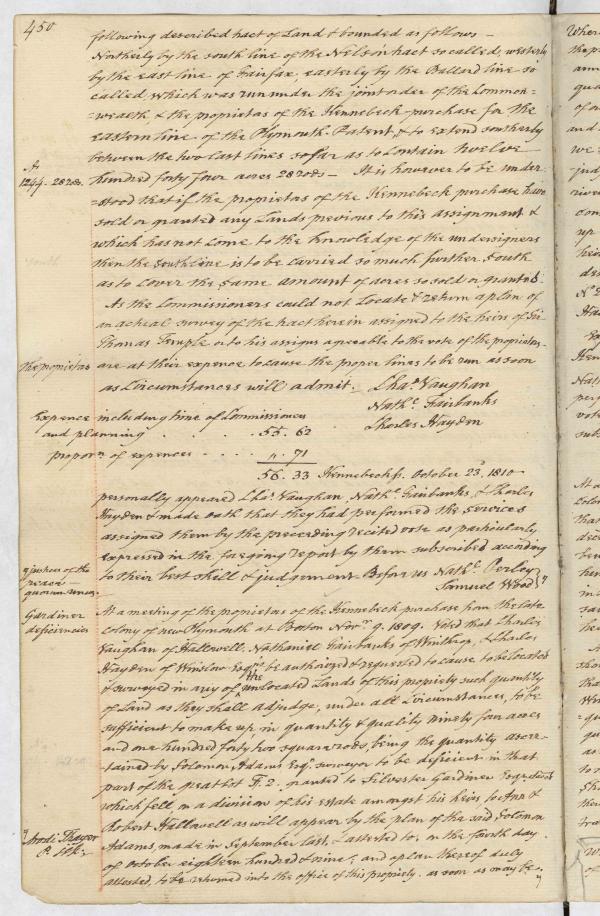 450
following described tract of Land & bounded as follows —
Northerly by the south line of the Nelson tract so called, westerly
by the east line of Fairfax, easterly by the Ballard line so
called, which was run under the joint order of the Common=
=wealth, & the proprietors of the Kennebeck purchase for the
eastern line of the Plymouth Patent, & to extend southerly
between the two last lines so far as to contain twelve
As
1244. 28 rods.
hundred forty four acres 28 rods — It is however to be under=
=stood that if the proprietors of the Kennebeck purchase have
sold or granted any Lands previous to this assignment &
which has not come to the knowledge of the undersigners
then the southline is to be carried so much further South
as to cover the same amount of acres so sold or granted.
As the Commissioners could not Locate & return a plan of
an actual survey of the tract herein assigned to the heirs of Sir
Thomas Temple or to his assigns agreeable to the vote of the proprietors,
The proprietors
are at their expence to cause the proper lines to be run as soon
as Circumstances will admit. Chas. Vaughan
Nathl. Fairbanks
Charles Hayden
Expence including time of Commissioners
and planning . . . . . 55. 62
proporn. of expences . . . . ". 71
56. 33
Kennebeck ss. October 23d. 1810
personally appeared Chs. Vaughan, Nathl. Fairbanks, & Charles
Hayden & made oath that they had performed the services
assigned them by the preceeding recited vote as particularly
expressed in the foregoing report by them subscribed according
to their best skill & judgement Before us Nathl. Perley
Samuel Wood
justices of the
peace —
quorum unus.
Gardiner
deficiencies
At a meeting of the proprietors of the Kennebeck purchase from the late
Colony of new Plymouth at Boston Novr. 9. 1809. Voted that Charles
Vaughan of Hallowell, Nathaniel Fairbanks of Winthrop, & Charles
Hayden of Winslow Esqrs. be authorized & requested to cause to be located
& surveyed in any of the unlocated Lands of this propriety such quantity
of Land as they shall adjudge, under all Circumstances, to be
sufficient to make up in quantity & quality ninety four acres
and one hundred forty two square rods, being the quantity ascer=
=tained by Solomon Adams Esqr. surveyor to be deficient in that
part of the great Lot F. 2. granted to Silvester Gardiner
which fell in a division of his estate amongst his heirs, to Ann &
Robert Hallowell as will appear by the plan of the said Solomon
Adams, made in September last, & attested to, on the fourth day
Arodi Thayer
P. Clk.
of October eighteen hundred & nine; and a plan thereof duly
attested, to be returned into the office of this propriety as soon as may be